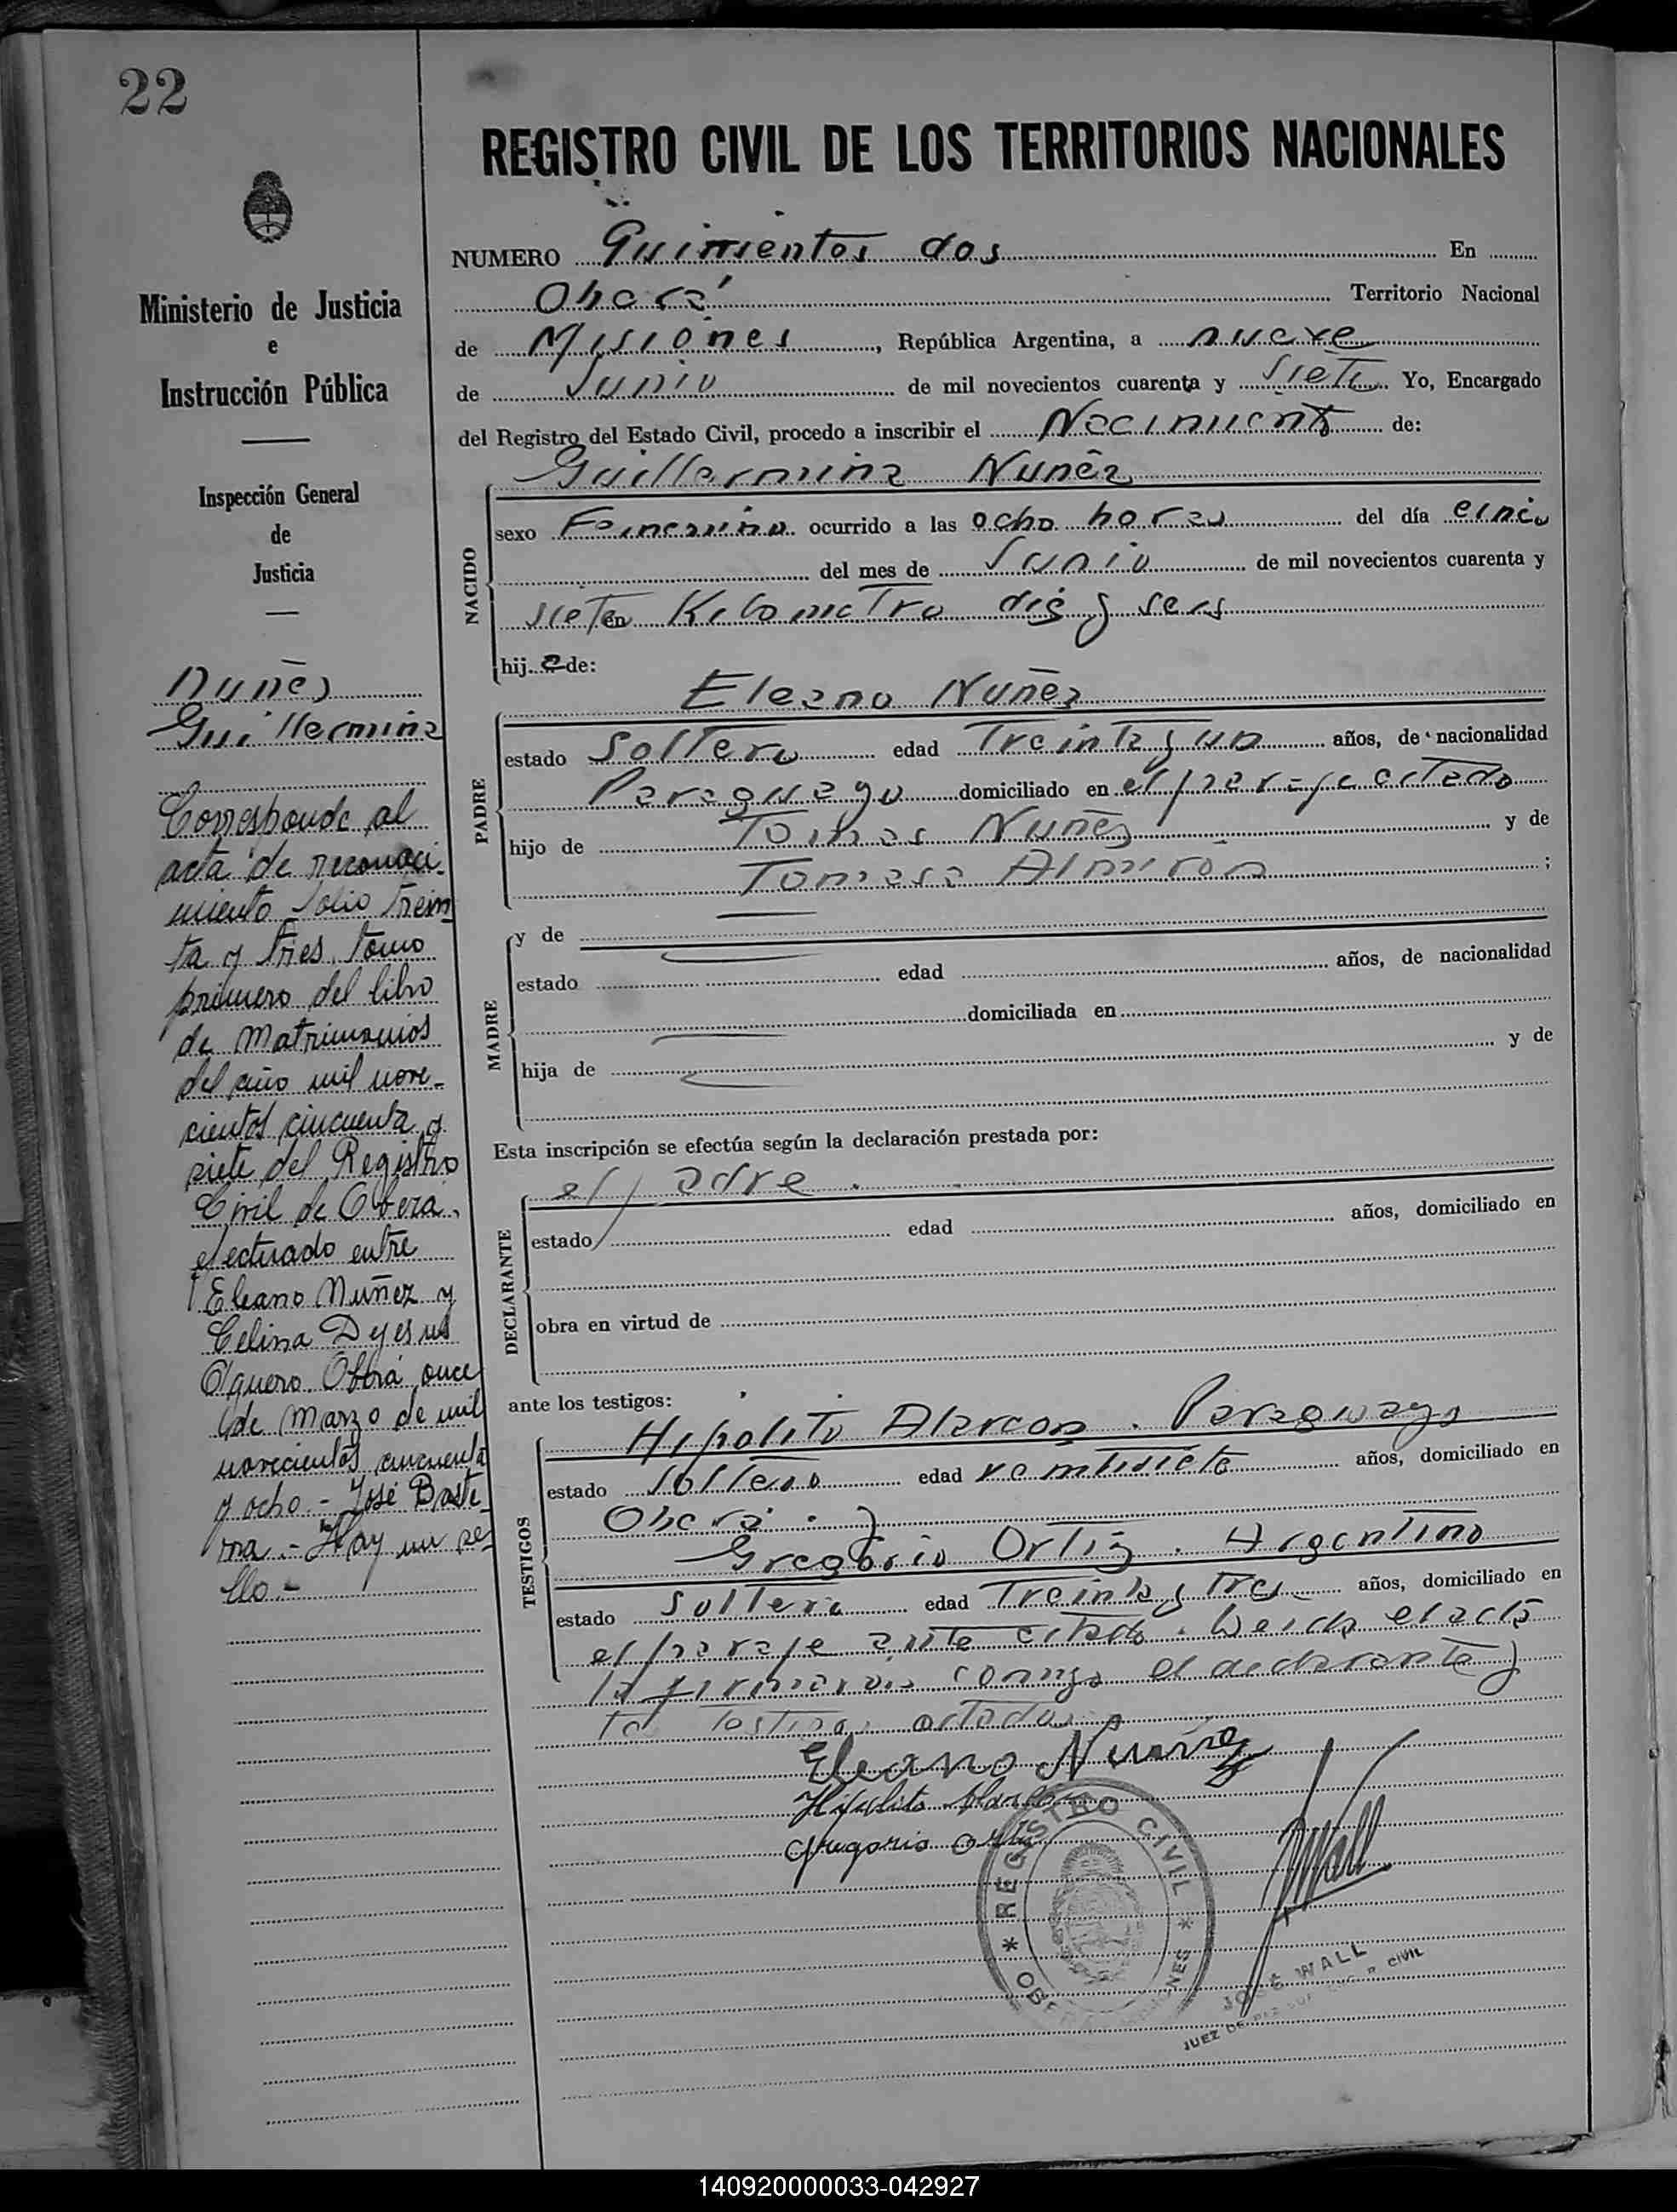 22
Ministerio de Justicia
e
Instrucción Pública
Inspección General
de
Justicia
Nuñes
Guillermina
Corresponde al
acta de reconoci-
miento folio trein
ta y tres, tomo
primero del libro
de Matrimonios
del año mil nove-
cientos cincuenta y
siete del Registro
Civil de Oberá,
efectuado entre
Eleano Nuñez y
Celina
Agüero. Oberá once
de Marzo de mil
novecientos cincuenta
y ocho.- José
Hay un se
llo.-
REGISTRO CIVIL DE LOS TERRITORIOS NACIONALES
NUMERO Quinientos dos En
Oberá Territorio Nacional
de Misiones, República Argentina, a nueve
de Junio de mil novecientos cuarenta y siete Yo, Encargado
del Registro del Estado Civil, procedo a inscribir el Nacimiento de:
Guillermina Nuñez
NACIDO
sexo Femenino ocurrido a las ocho horas del día cinco
del mes de Junio de mil novecientos cuarenta y
siete en Kilometro dis y seis
hija de:
PADRE
Eleano Nuñez
estado Soltero edad Treinta y un años, de nacionalidad
Paraguayo domiciliado en el paraje citado
hijo de Tomas Nuñez y de
Tomasa Almirón ;
MADRE
y de
estado edad años, de nacionalidad
domiciliada en
hija de y de
Esta inscripción se efectúa según la declaración prestada por:
DECLARANTE
el padre
estado edad años, domiciliado en
obra en virtud de
ante los testigos:
TESTIGOS
Hipolito Alarcon. Paraguayo
estado Soltero edad veintisiete años, domiciliado en
Oberá y
Gregorio Ortiz. Argentino
estado Soltero edad Treinta y tres años, domiciliado en
el paraje ante citado. Leida el acta
la firmaron conmigo el declarante y
testigos citados
Eleano Nuñez
Hipolito Alarcon
Gregorio Ortiz
REGISTRO CIVIL
JWall
JOSÉ WALL
JUEZ DE CIVIL
140920000033-042927